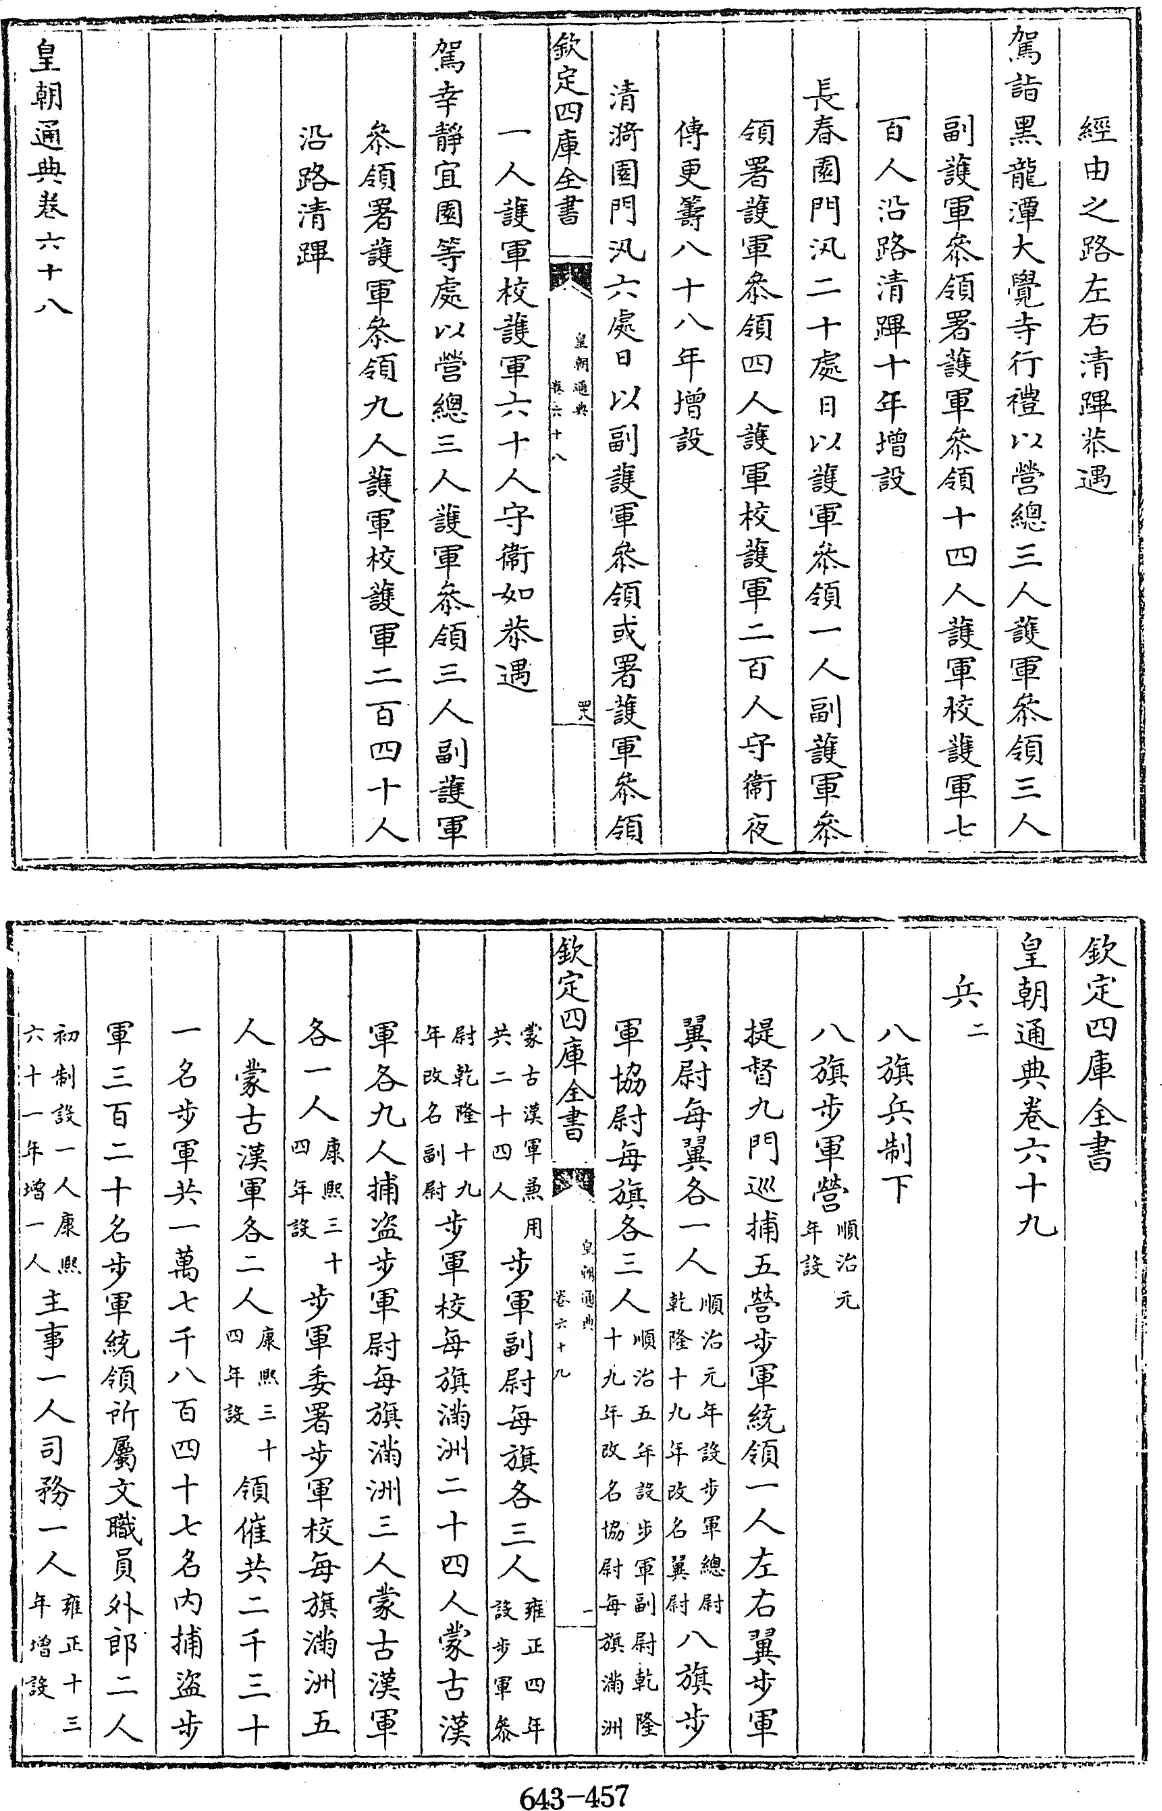 經由之路左右清蹕恭遇
駕詣黑龍潭大覺寺行禮以營總三人護軍叅領三人
副護軍叅領署護軍叅領十四人護軍校護軍七
百人沿路清蹕十年增設
長春園門汛二十處日以護軍叅領一人副護軍叅
領署護軍叅領四人護軍校護軍二百人守衛夜
傳更籌八十八年增設
清漪園門汛六處日以副護軍叅領或署護軍叅領
欽定四庫全書
皇朝通典
卷六十八
一人護軍校護軍六十人守衛如恭遇
駕幸靜宜園等處以營總三人護軍叅領三人副護軍
叅領署護軍叅領九人護軍校護軍二百四十人
沿路清蹕
皇朝通典卷六十八
欽定四庫全書
皇朝通典卷六十九
兵二
八旗兵制下
八旗步軍營順治元
年設
提督九門巡捕五營步軍統領一人左右翼步軍
翼尉每翼各一人順治元年設步軍總尉
乾隆十九年改名翼尉八旗步
軍協尉每旗各三人順治五年設步軍副尉乾隆
十九年改名協尉每旗滿洲
欽定四庫全書
皇朝通典
卷六十九
一
蒙古漢軍兼用
共二十四人步軍副尉每旗各三人雍正四年
設步軍叅
尉乾隆十九
年改名副尉步軍校每旗滿洲二十四人蒙古漢
軍各九人捕盜步軍尉每旗滿洲三人蒙古漢軍
各一人康熙三十
四年設步軍委署步軍校每旗滿洲五
人蒙古漢軍各二人康熙三十
四年設領催共二千三十
一名步軍共一萬七千八百四十七名內捕盜步
軍三百二十名步軍統領所屬文職員外郎二人
初制設一人康熙
六十一年增一人主事一人司務一人雍正十三
年增設
643-457